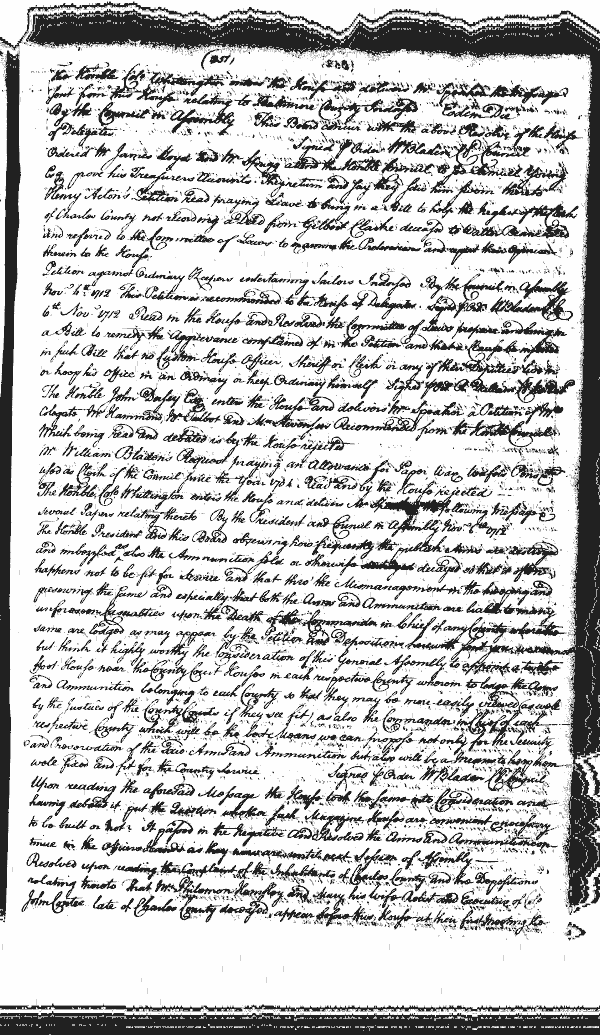 (257)
The Honble Colo Whittington enters the House and delivers Mr Speaker the Message
sent from this House relating to Baltimore County Indorsed Eodem Die
By the Council in Assembly This Board concur with the above Resolve of the House
of Delegates Signed p Order W Bladen Cl Council
Ordered Mr James Lloyd and Mr attend the Honble Council to see Samuel Young
Esq prove his Treasurers Accounts. They return and say they saw him sworn thereto
Henry Acton's Petition read praying Leave to bring in a Bill to help the neglect of the Clerk
of Charles County not recording a Deed from Gilbert Clarke deceased to
and referred to the Committee of Laws to examine the and report their Opinion
therein to the House.
Petition against Ordinary Keepers entertaining Sailors Indorsed By the Council in Assembly
Novr 4th 1712 This Petition is recommended to the House of Delegates. Signed p Order W Bladen Cl Co
6th Novr 1712 Read in the House and Resolved the Committee of Laws prepare and bring in
a Bill to remedy the Aggrievance complained of in the Petition and that a Clause be inserted
in such Bill that no Custom House Officer Sheriff or Clerk or any of their Deputies live in
or keep his office in an Ordinary or keep Ordinary himself Signed p Order
The Honble John Dorsey Esq enters the House and delivers Mr Speaker a Petition of Mr
Colegate, Mr Hammond, Mr Talbot and Mr Stevenson Recommended from the Honble Council
Which being read and debated is by the House rejected
Mr William Bladen's Request praying an Allowance for Paper Wax
used as Clerk of the Council since the Year 1704. Read and by the House rejected
The Honble Colo Whittington enters the House and delivers Mr Speaker the following Message &
several Papers relating thereto By the President and Council in Assembly Novr 6th 1712
The Honble President and this Board observing how frequently the publick Arms are destroyed
and imbezzled as also the Ammunition sold or otherwise decayed so that it often
happens not to be fit for Service and that thro' the Mismanagement in the keeping and
preserving the same and especially that both the Arms and Ammunition are liable to many
unforeseen Casualties upon the Death of the Commander in Chief of any County where the
same are lodged as may appear by the Petition and Depositions herewith sent you
but think it highly worthy the Consideration of this General Assembly to
foot House near the County Court Houses in each respective County wherein to lodge the Arms
and Ammunition belonging to each County so that they may be more easily viewed as well
by the Justices of the County Courts if they see fit, as also the Commander in Chief of each
respective County which will be the best Means we can propose not only for the Security
and Preservation of the said Arms and Ammunition but also will be a Means to keep them
well fixed and fit for the Country Service Signed p Order W Bladen Cl Council
Upon reading the aforesaid Message the House took the same into Consideration and
having debated it put the Question whether such Magazine Houses are convenient & necessary
to be built or not? It passed in the Negative And Resolved the Arms and Ammunition con-
tinue in the officers hands as they now are until next Session of Assembly
Resolved upon reading the Complaint of the Inhabitants of Charles County and the Depositions
relating thereto that Mr Philemon Hemsley and Mary his Wife Relict and Executrix of Colo
John Contee late of Charles County deceased, appear before this House at their first Meeting the